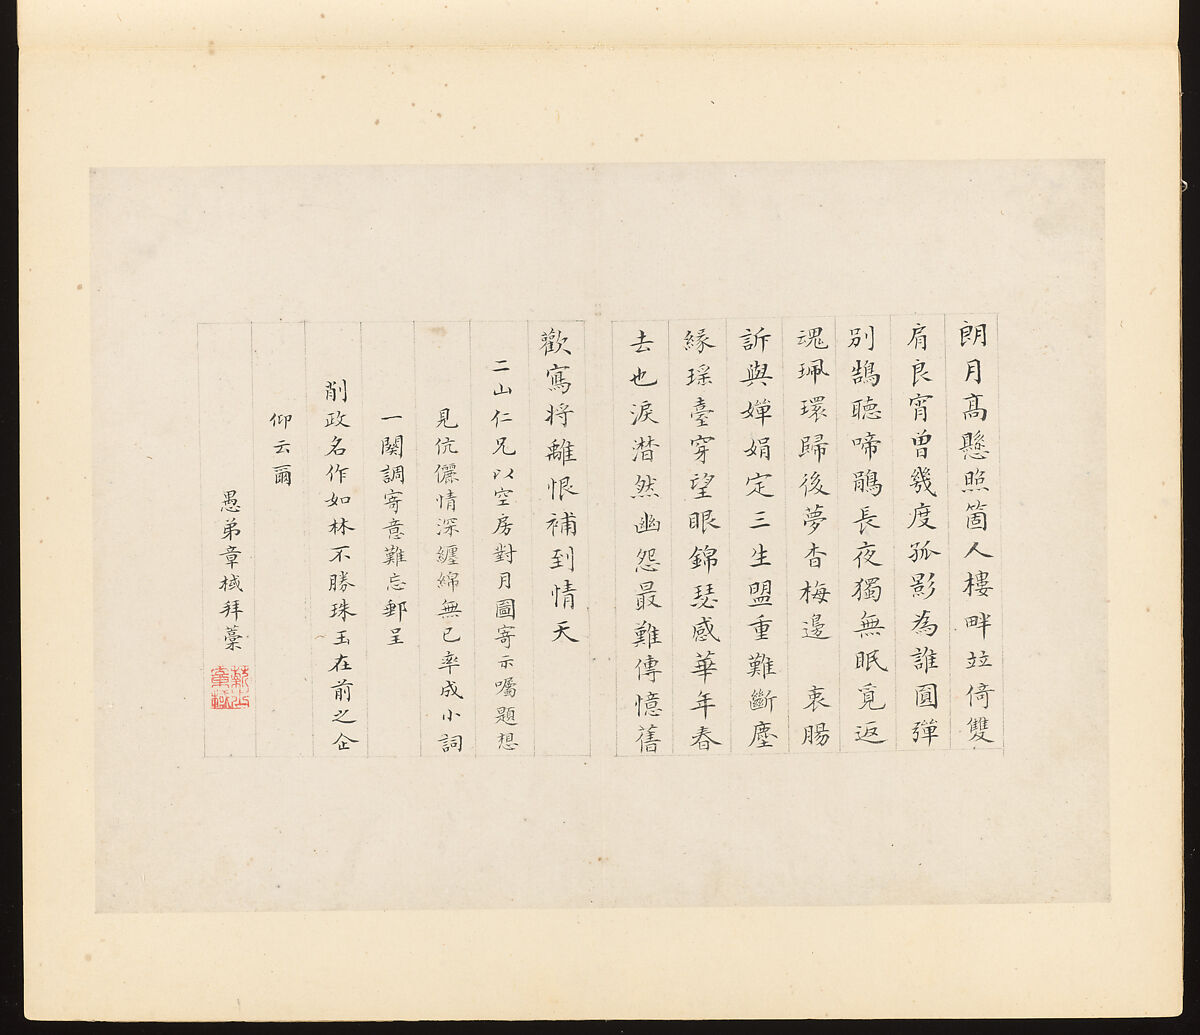 朗月高懸照箇人樓畔竝倚雙
肩良宵曾幾度孤影為誰圓彈
別鵠聽啼鵑長夜獨無眠覓返
魂珮環歸後夢杳梅邊 衷腸
訴與嬋娟定三生盟重難斷塵
緣瑶臺穿望眼錦瑟感華年春
去也淚潸然幽怨最難傳憶舊
歡寫将離恨補到情天
二山仁兄以空房對月圖寄示囑題想
見伉儷情深纏綿無已率成小詞
一闋調寄意難忘郵呈
削政名作如林不勝珠玉在前之企
仰云爾
愚弟章棫拜藁